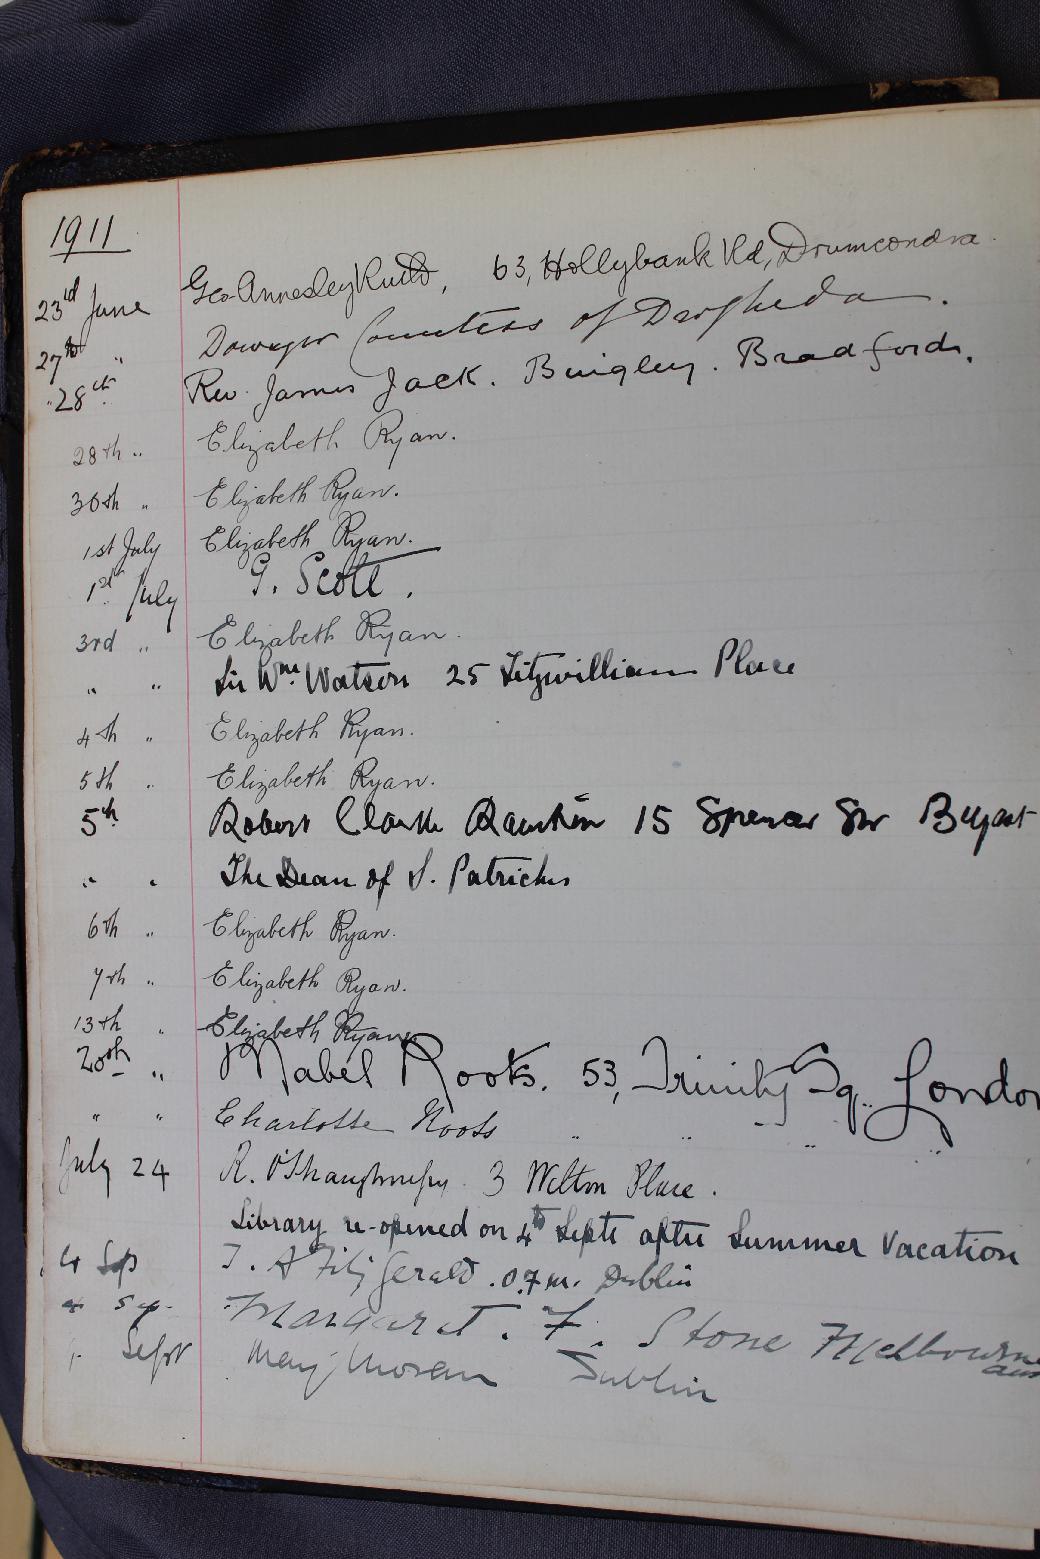 1911
23rd June Geo Annesley Rudd, 63, Hollybank Rd, Drumcondra.
27th " Dowager Countess of Drogheda.
"28th Rev. James Jack. Bingley. Bradford.
28th " Elizabeth Ryan.
30th " Elizabeth Ryan.
1st July Elizabeth Ryan.
1st July G. Scott.
3rd " Elizabeth Ryan.
" " Sir Wm. Watson 25 Fitzwilliam Place
4th " Elizabeth Ryan.
5th " Elizabeth Ryan.
5th Robert Clarke 15 Spencer Str Belfast
" " The Dean of S. Patricks
6th " Elizabeth Ryan.
7th " Elizabeth Ryan.
13th " Elizabeth Ryan
20th " Mabel Roots. 53, Trinity Sq. London
" " Charlotte Roots " " " "
July 24 R. O'Shaughnessy 3 Wilton Place.
Library re-opened on 4th Septr after Summer Vacation
4 Sep T. A FitzGerald. O.F.M. Dublin
4 Sep. Margaret. F. Stone Melbourne
Sept Mary Moran Dublin